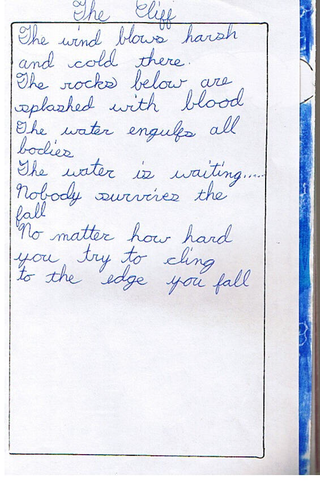 The Cliff
The wind blows harsh
and cold there.
The rocks below are
splashed with blood
The water engulfs all
bodies
The water is waiting.....
Nobody survives the
fall
No matter how hard
you try to cling
to the edge you fall